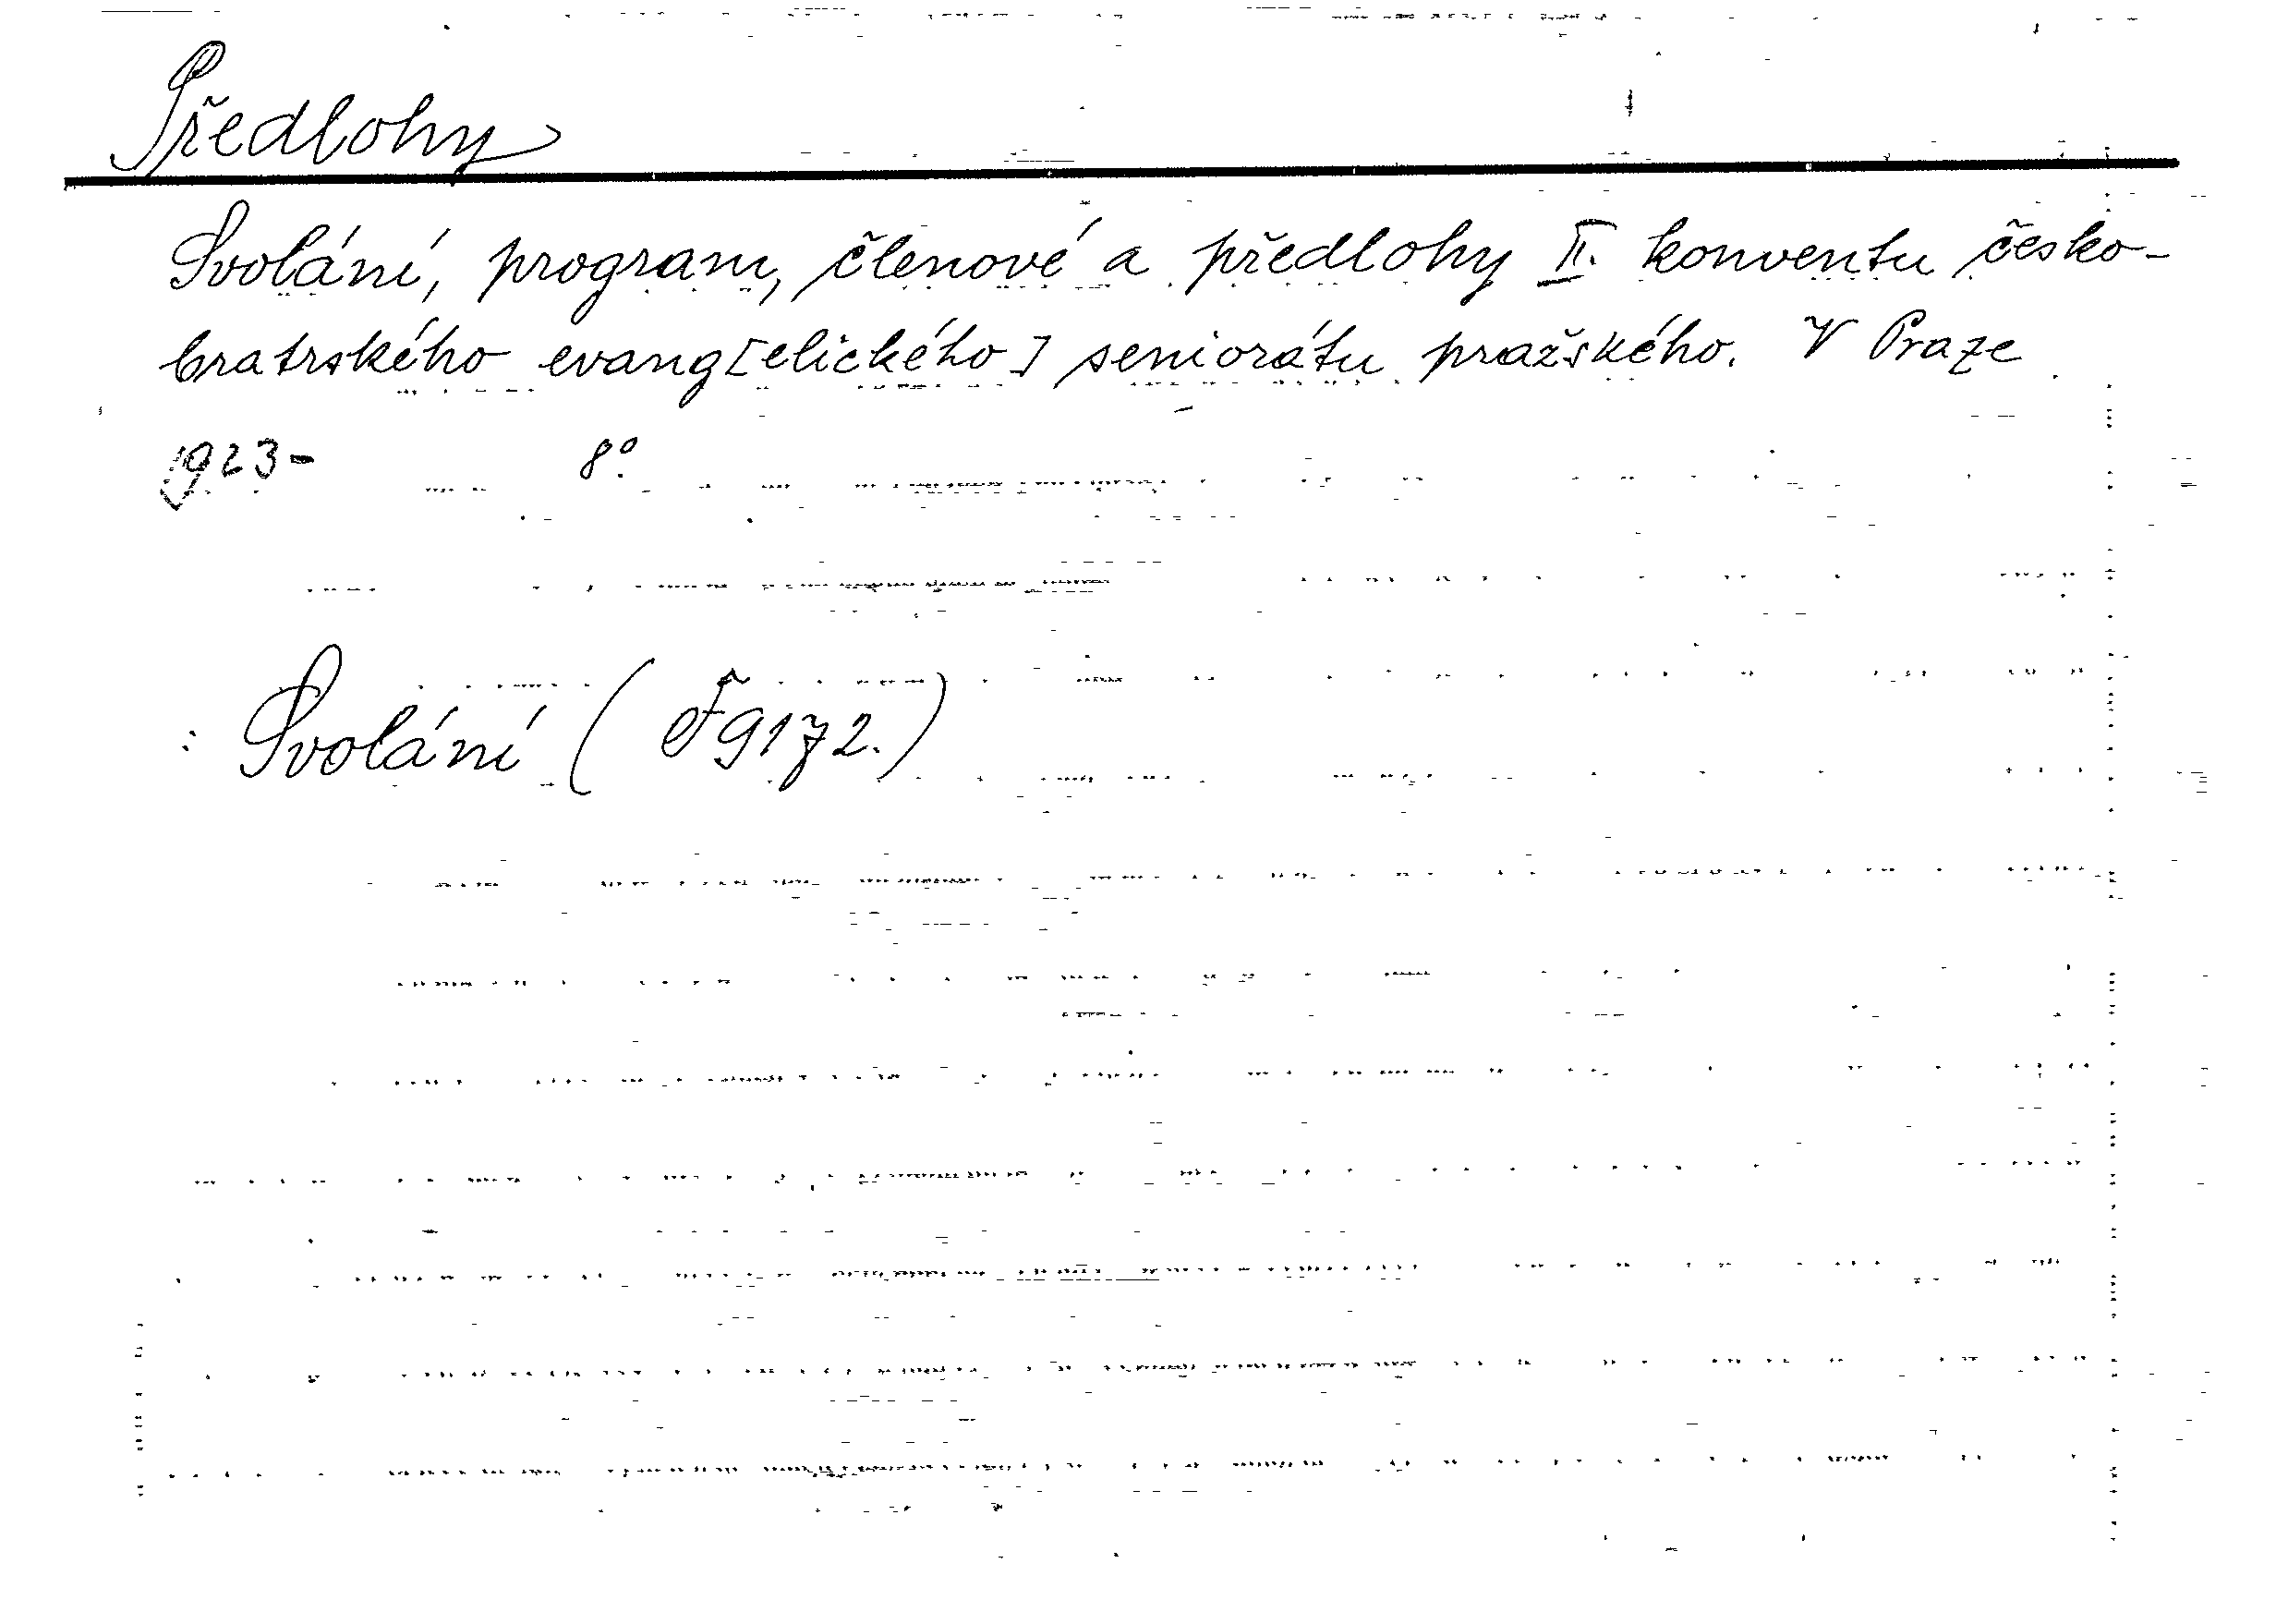 Předlohy
Svolání, program, členové a předlohy II. konventu česko-
bratrského evang[elického] seniorátu pražského. V Praze
1923- 8°.
: Svolání (F 9172.)